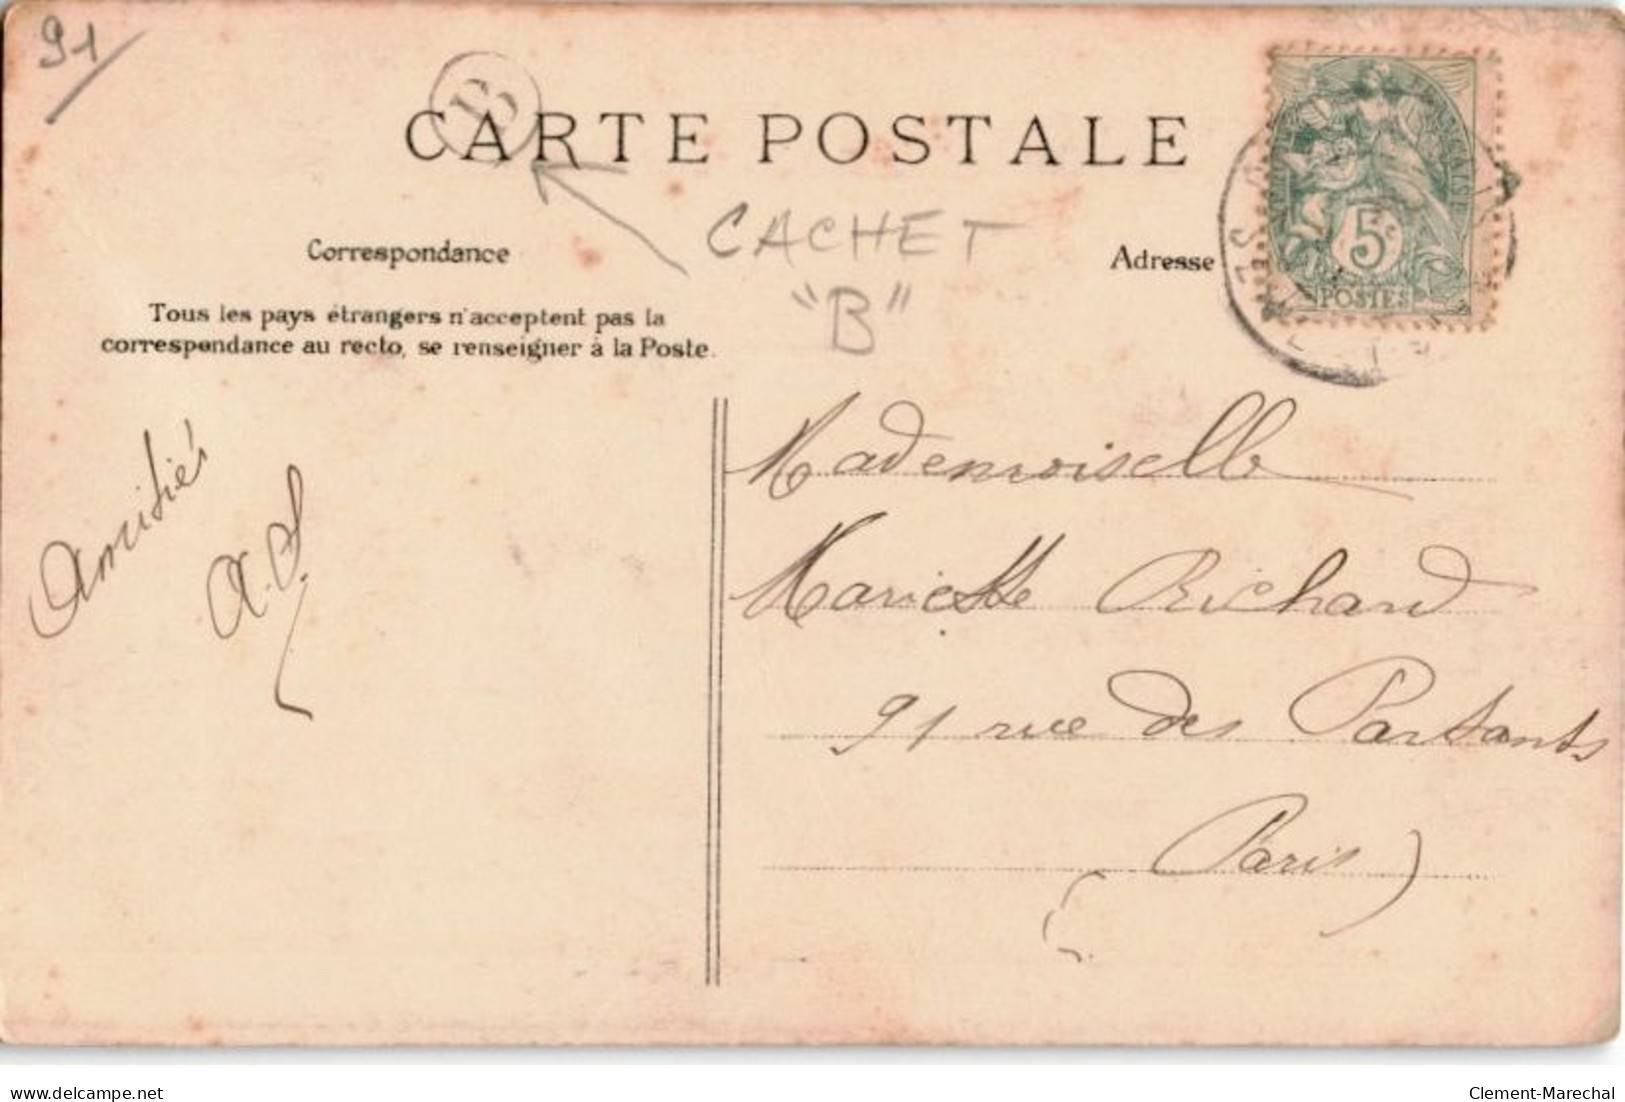 91
B
CARTE POSTALE
CACHET
"B"
Correspondance
Adresse
Tous les pays étrangers n'acceptent pas la
correspondance au recto, se renseigner à la Poste.
5c
POSTES
Amitiés
A.S.
Mademoiselle
Mariette Richard
91 rue des Partants
Paris)
delcampe.net
Clement-Marechal